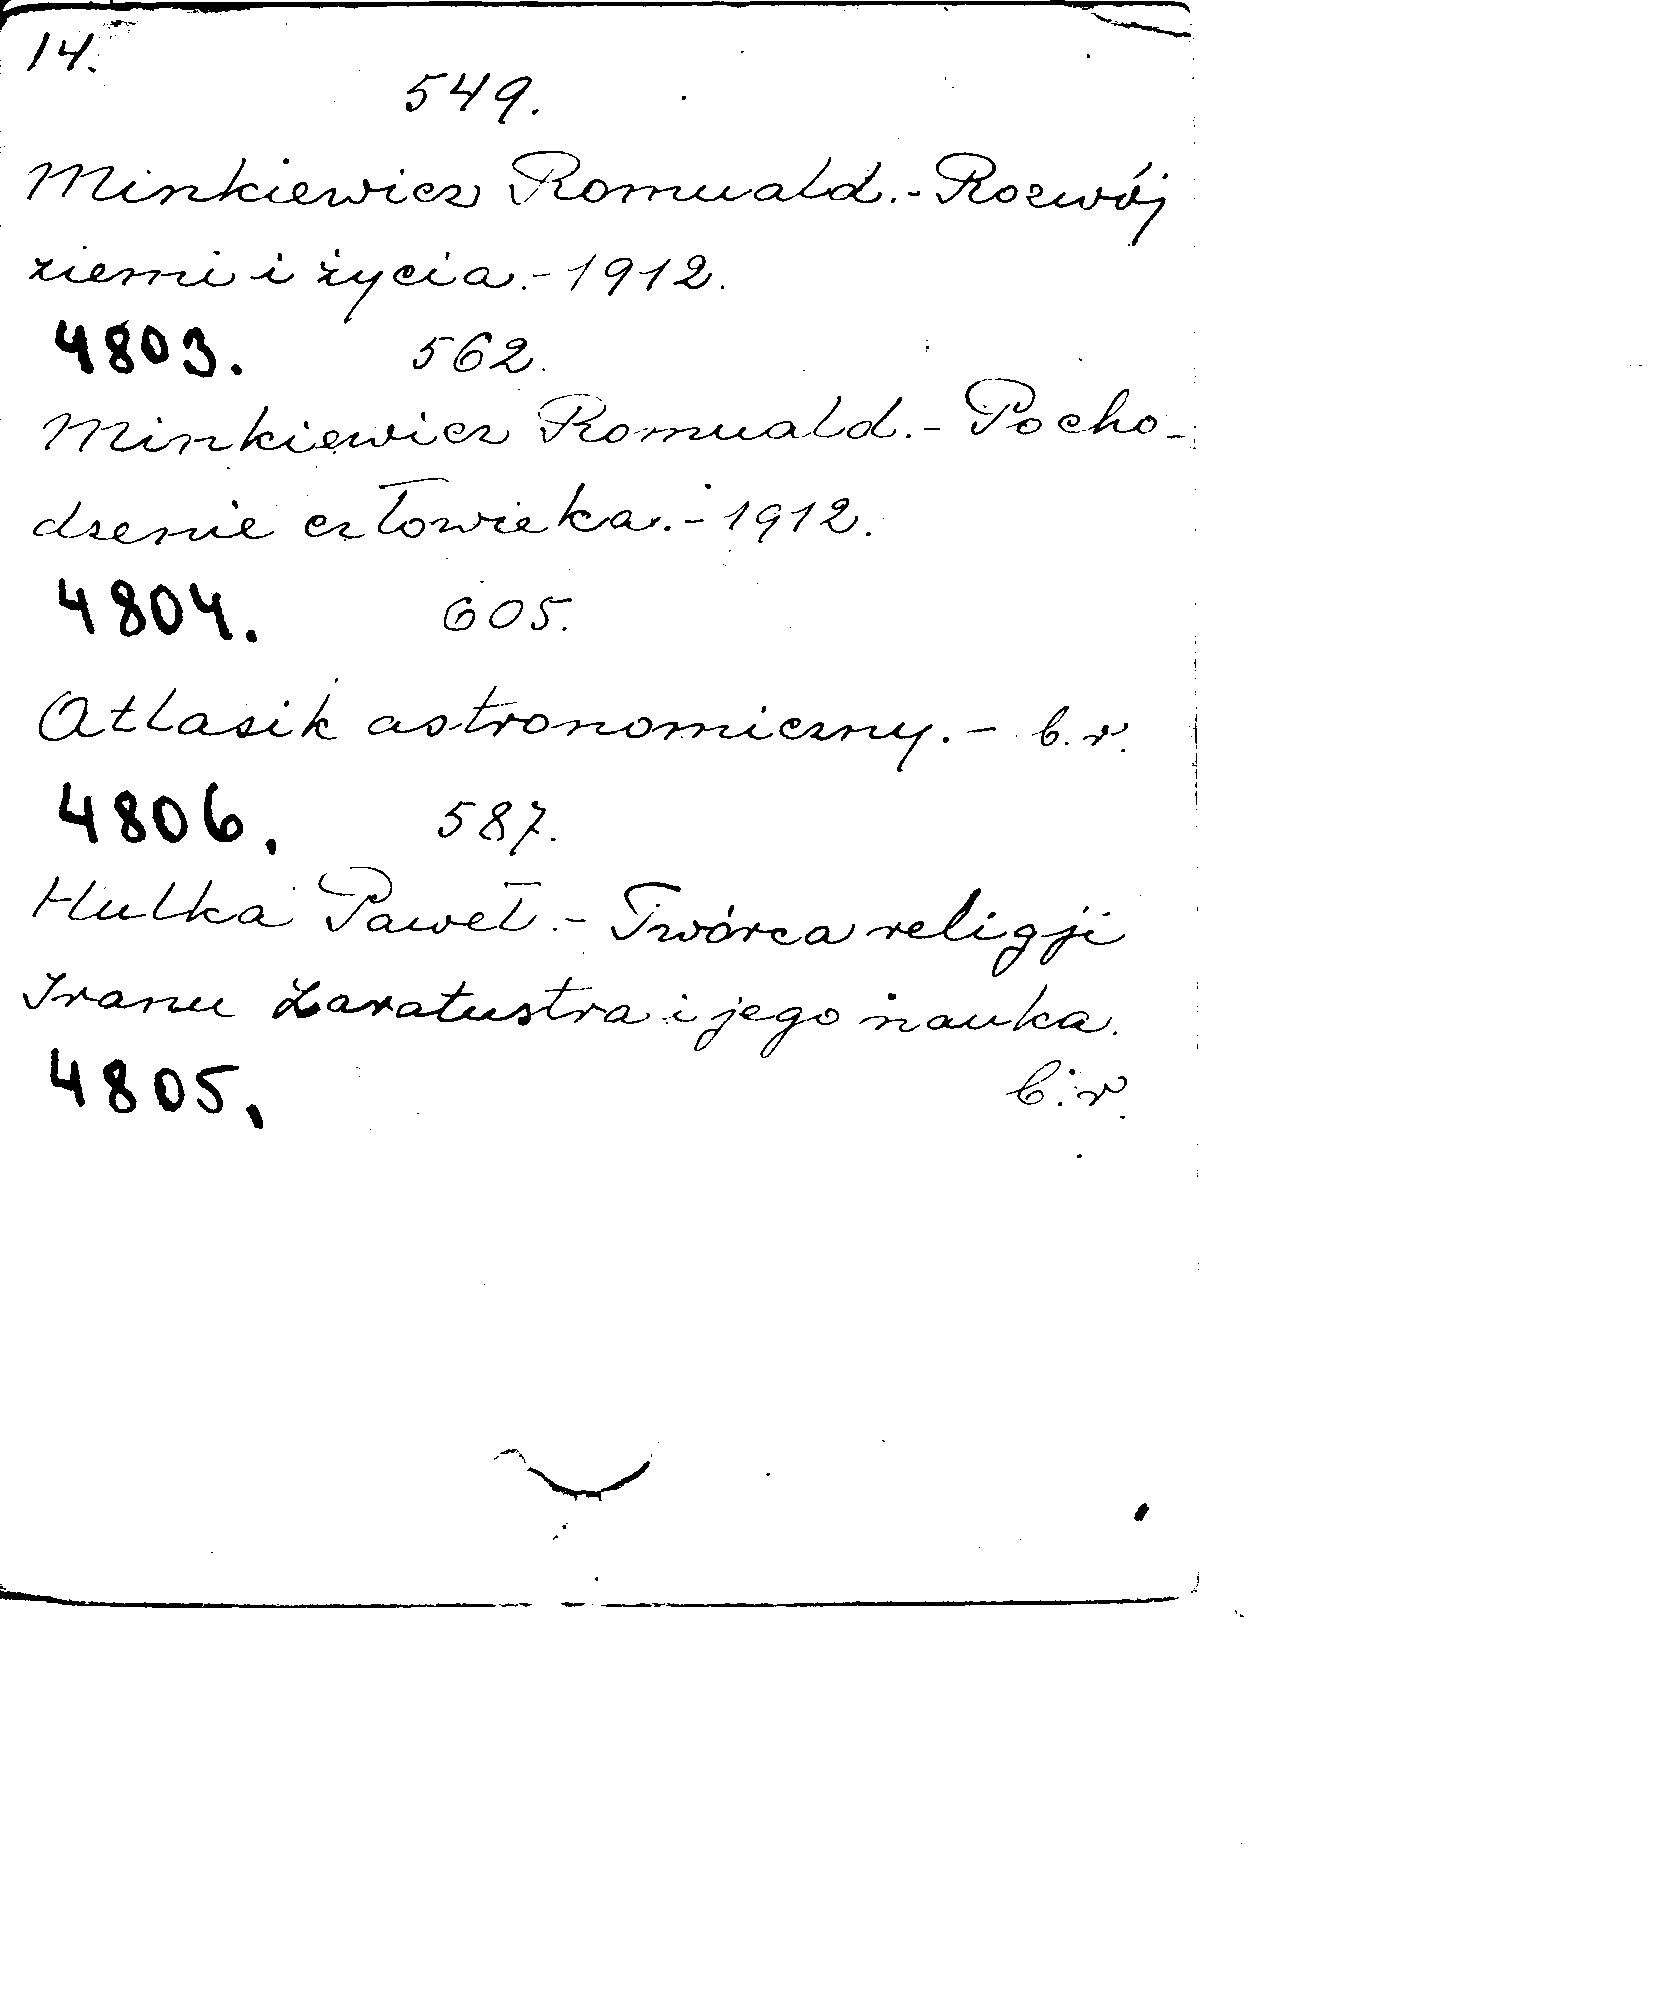 14.
549.
Minkiewicz Romuald.- Rozwój
ziemi i życia.- 1912.
4803. 562.
Minkiewicz Romuald.- Pocho-
dzenie człowieka.- 1912.
4804. 605.
Atlasik astronomiczny.- b.r.
4806. 587.
Hulka Paweł.- Twórca religji
Iranu Zaratustra i jego nauka.
4805. b.r.